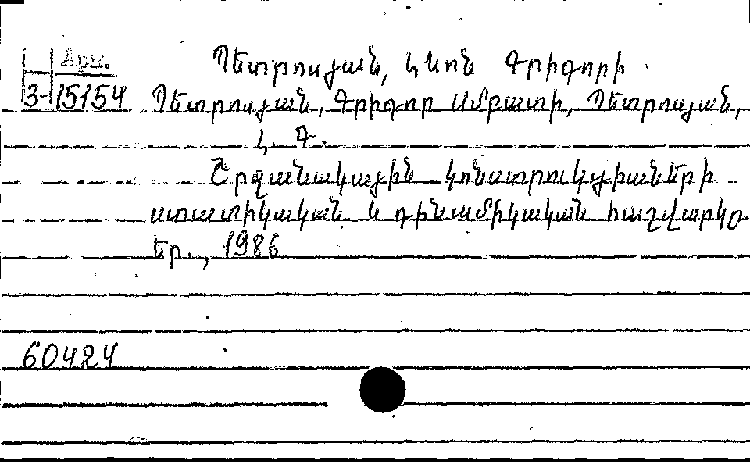 Արմ. Պետրոսյան, Լևոն Գրիգորի
3-15154 Պետրոսյան, Գրիգոր Սմբատի, Պետրոսյան,
Լ. Գ.
Շրջանակային կոնստրուկցիաների
ստատիկական և դինամիկական հաշվարկը
Եր., 1986
60424